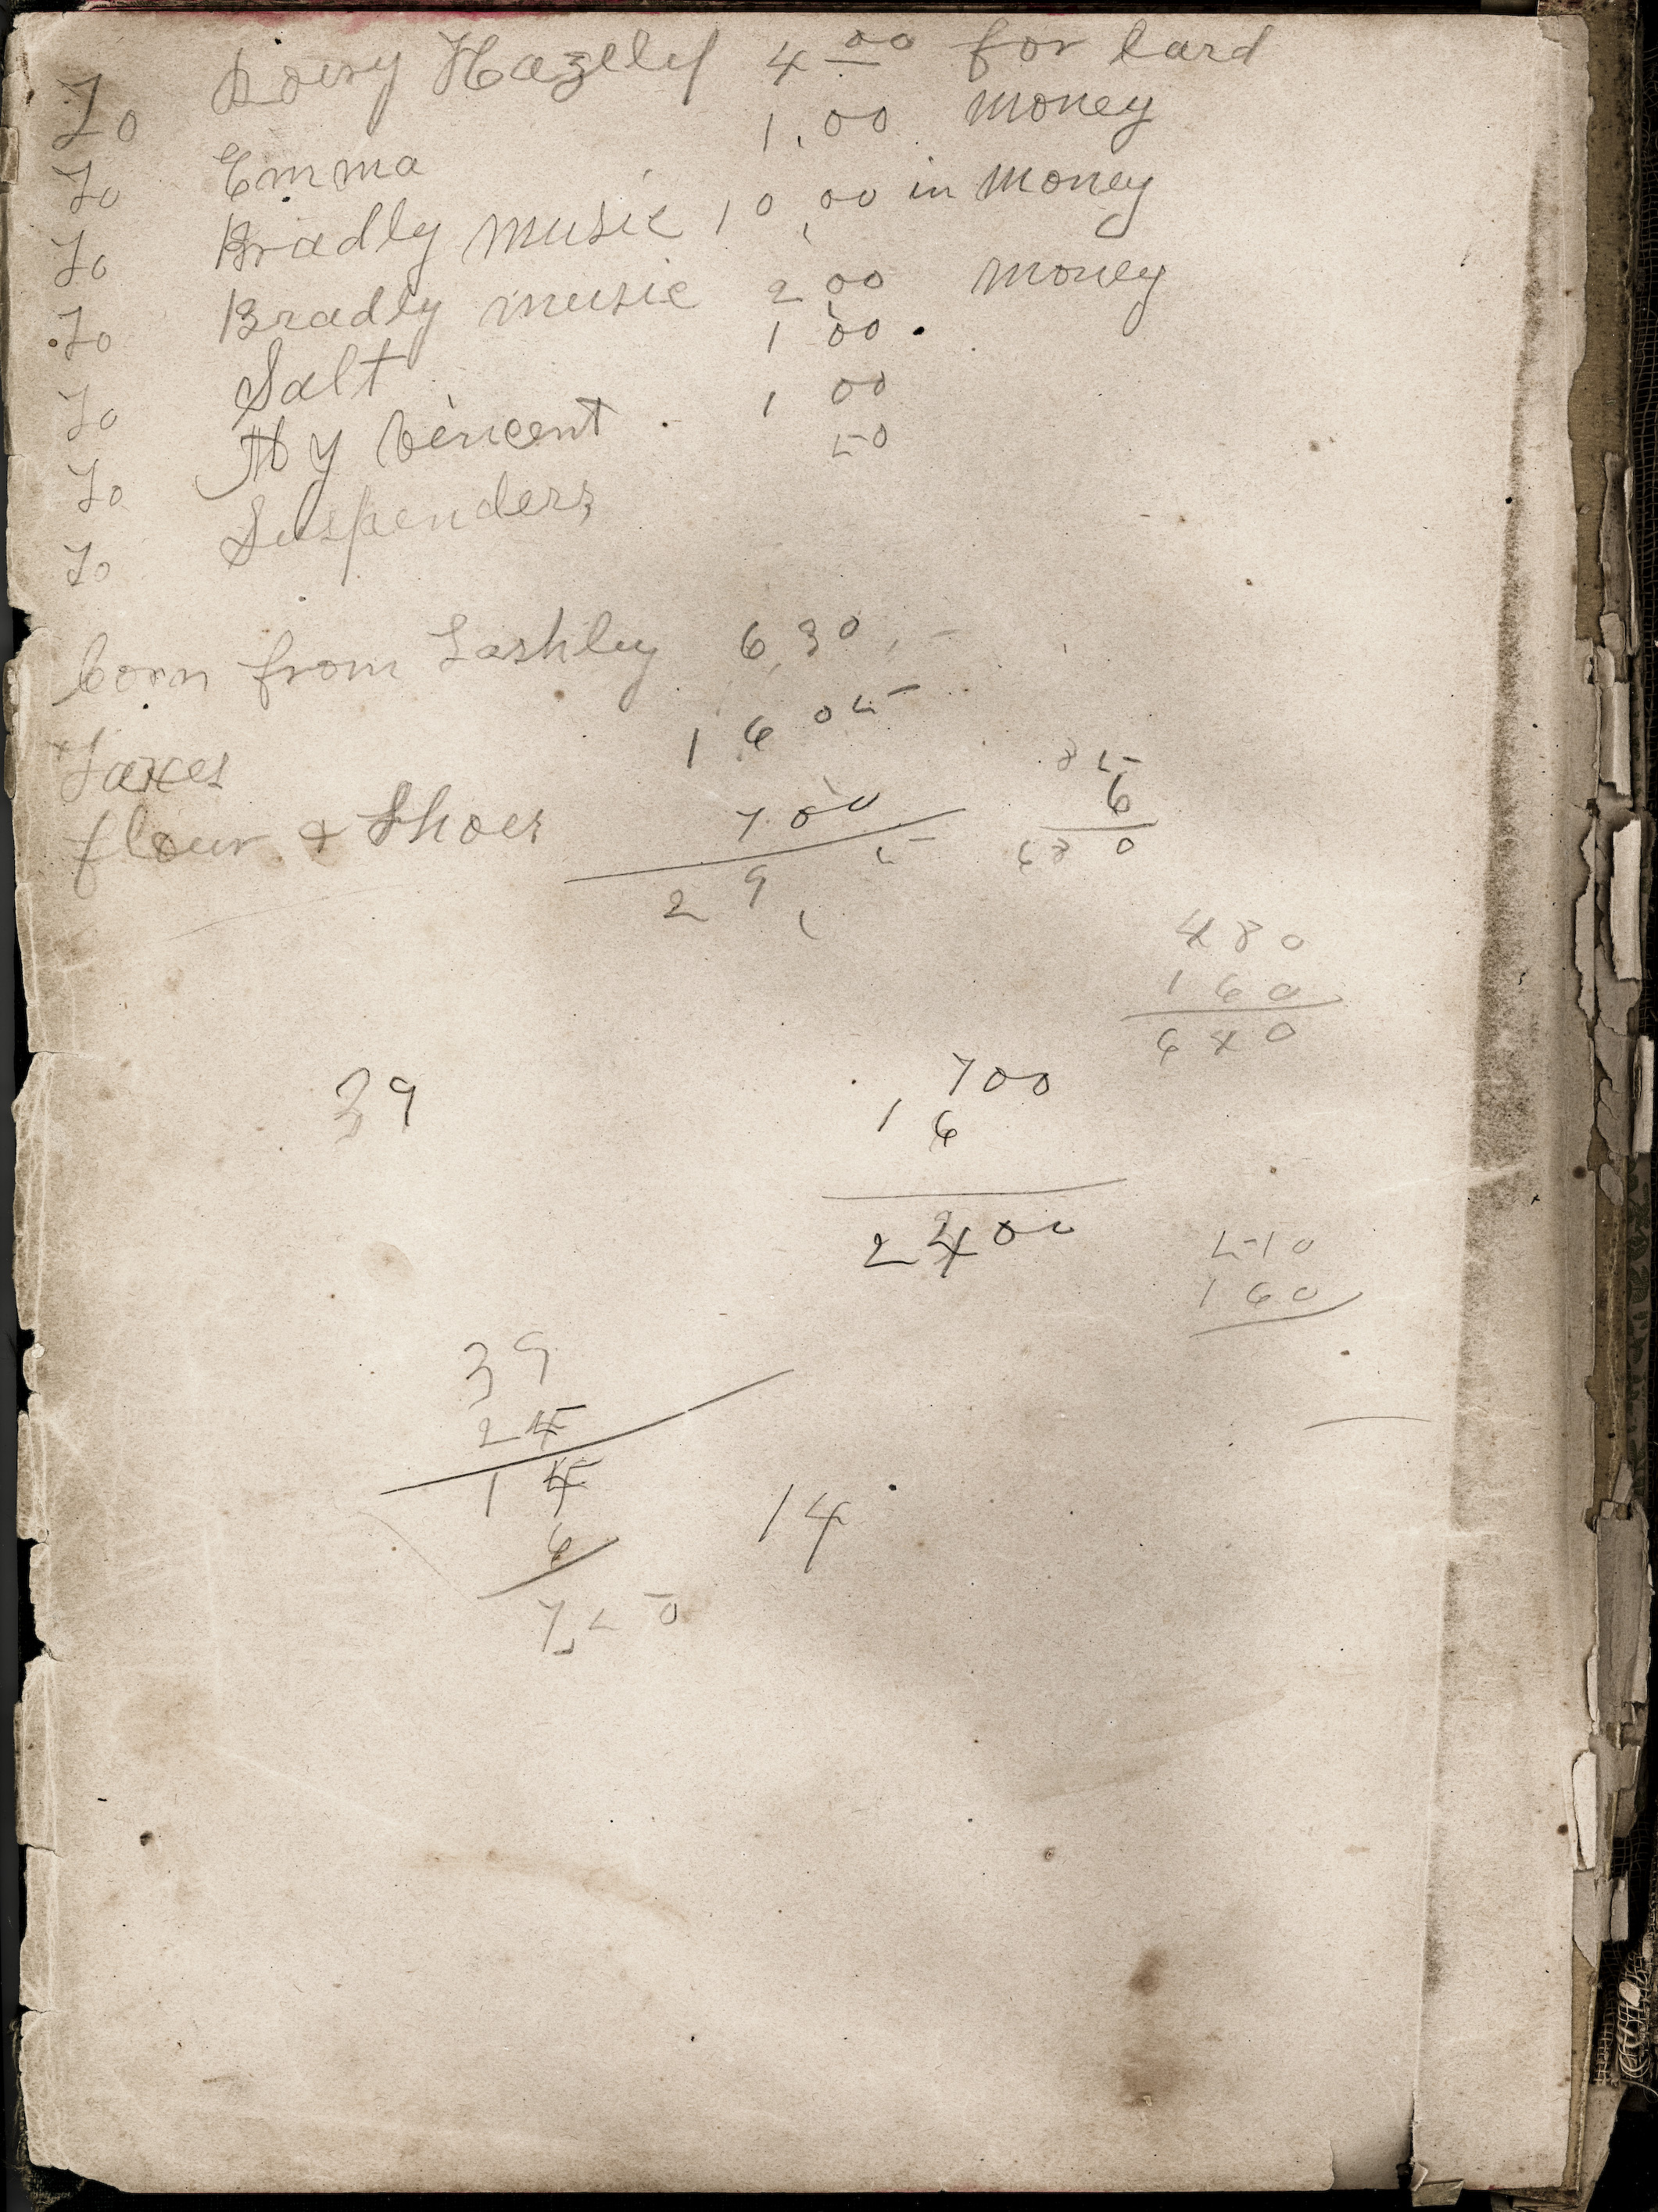 To Hazelly 4 00 for lard
To Emma 1.00 money
To Bradly music 10,00 in money
To Bradly music 2,00 money
To Salt 1 00
To Hy Vincent 1 00
To Suspenders 50
Corn from Lashley 6,30
Taxes 16 05
flour & Shoes 7 00
29,
5
6
0
480
160
640
39
700
16
2400
510
160
39
24
14
6
14